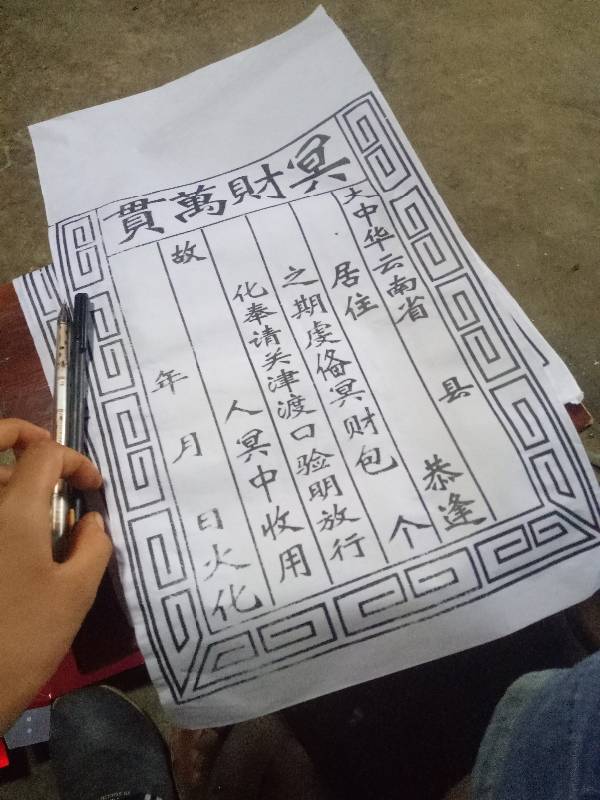 冥財萬貫
大中华云南省 县
居住 恭逢
之期虔俻冥财包 个
化奉请关津渡口验明放行
故 人冥中收用
年 月 日火化